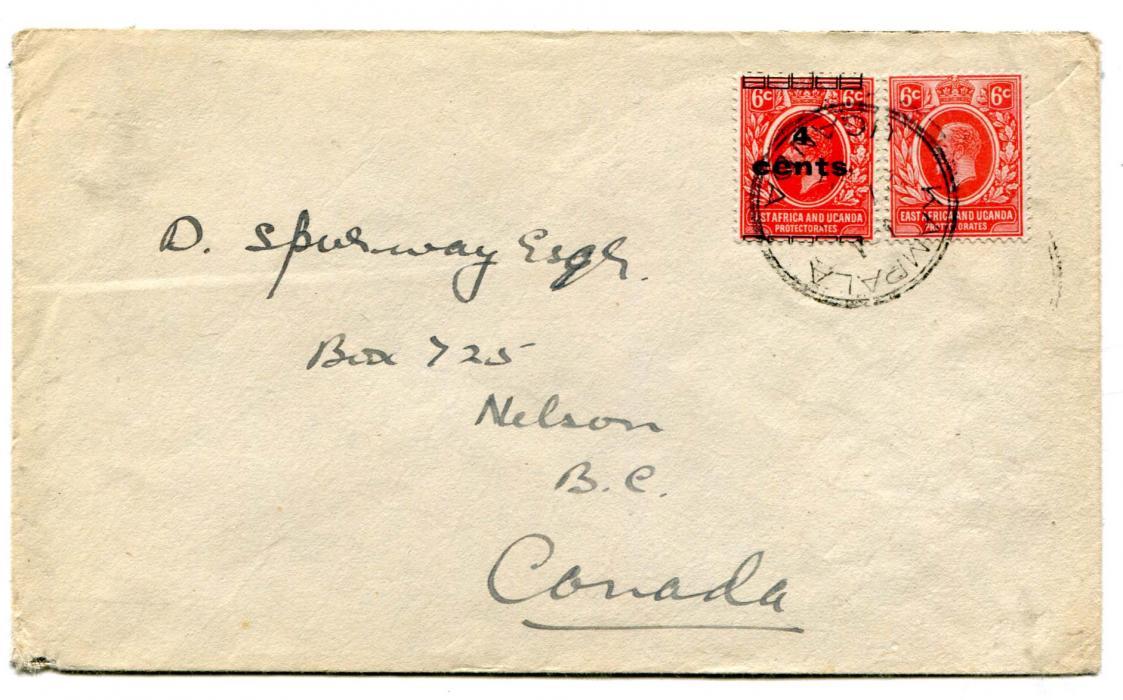 6c 6c
4
cents
EAST AFRICA AND UGANDA
PROTECTORATES
6c 6c
EAST AFRICA AND UGANDA
PROTECTORATES
KAMPALA
UGANDA
D. Spurway Esqr.
Box 725
Nelson
B.C.
Canada